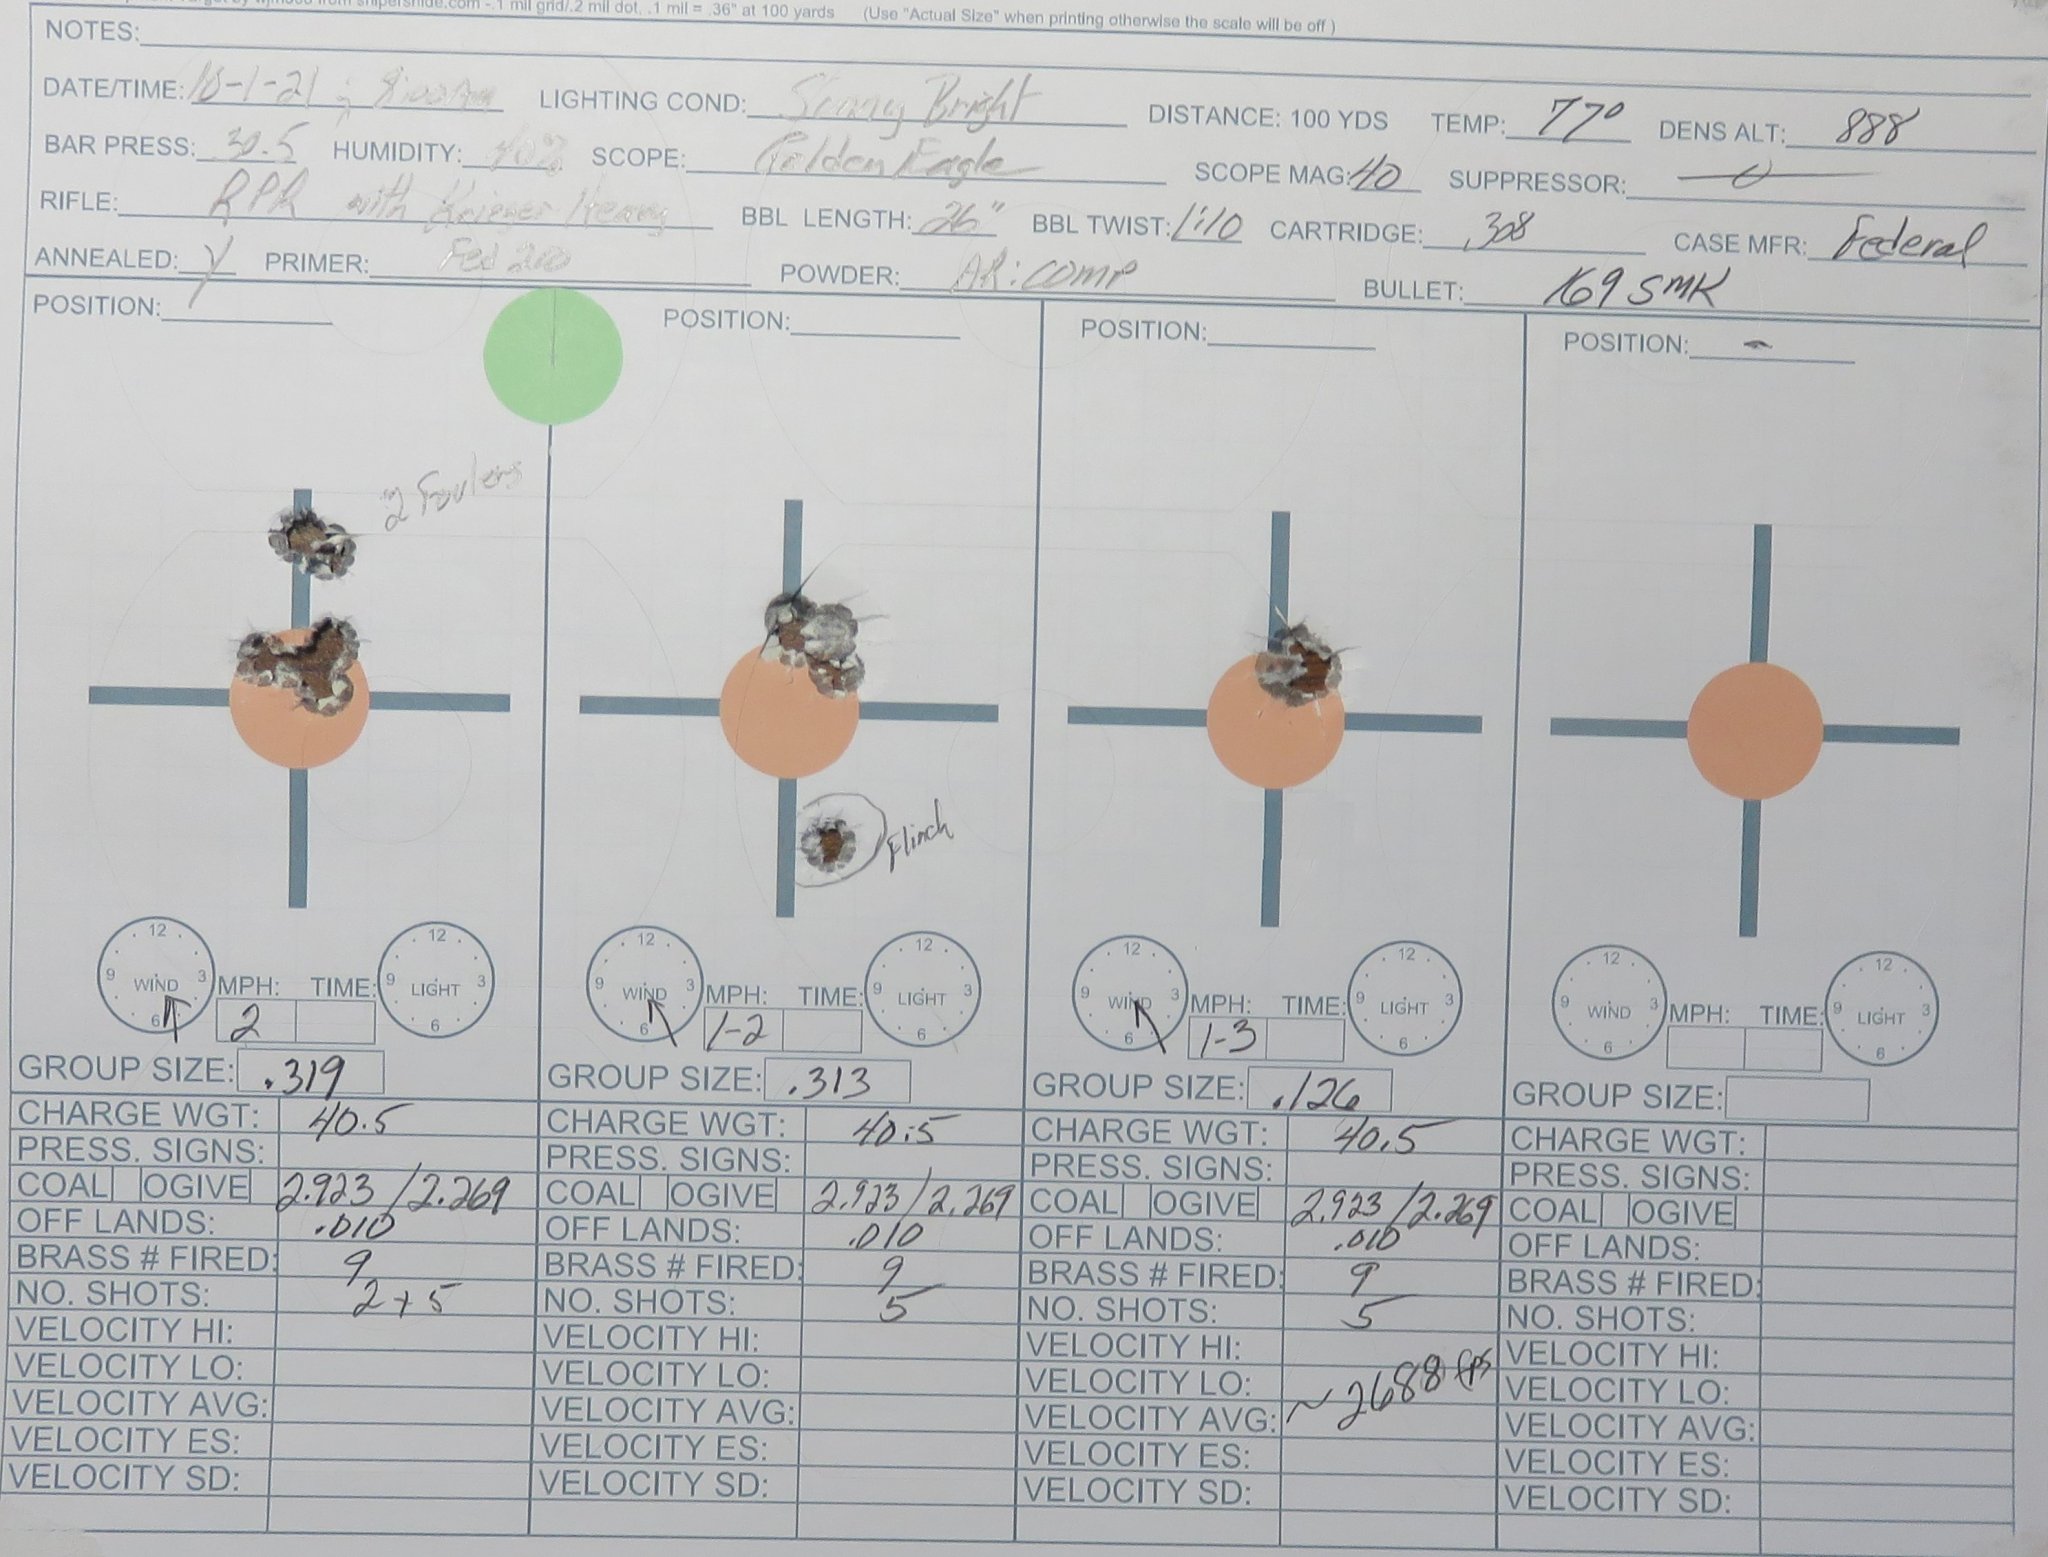 Target by wjm308 from snipershide.com - .1 mil grid/.2 mil dot, .1 mil = .36" at 100 yards (Use "Actual Size" when printing otherwise the scale will be off )
NOTES:
DATE/TIME: 10-1-21 ; 8:00 Am LIGHTING COND: Sunny Bright DISTANCE: 100 YDS TEMP: 77° DENS ALT: 888
BAR PRESS: 30.5 HUMIDITY: 40% SCOPE: Golden Eagle SCOPE MAG: 40 SUPPRESSOR: 0
RIFLE: RPR with Krieger Heavy BBL LENGTH: 26" BBL TWIST: 1:10 CARTRIDGE: .308 CASE MFR: Federal
ANNEALED: Y PRIMER: Fed 210 POWDER: AR:COMP BULLET: 169 SMK
POSITION: POSITION: POSITION: POSITION: -
2 Foulers
Flinch
12 12 12 12 12 12 12 12
9 WIND 3 9 LIGHT 3 9 WIND 3 9 LIGHT 3 9 WIND 3 9 LIGHT 3 9 WIND 3 9 LIGHT 3
6 6 6 6 6 6 6 6
MPH: TIME: MPH: TIME: MPH: TIME: MPH: TIME:
2 1-2 1-3
GROUP SIZE: .319 GROUP SIZE: .313 GROUP SIZE: .126 GROUP SIZE:
CHARGE WGT: 40.5 CHARGE WGT: 40.5 CHARGE WGT: 40.5 CHARGE WGT:
PRESS. SIGNS: PRESS. SIGNS: PRESS. SIGNS: PRESS. SIGNS:
COAL OGIVE 2.923/2.269 COAL OGIVE 2.923/2.269 COAL OGIVE 2.923/2.269 COAL OGIVE
OFF LANDS: .010 OFF LANDS: .010 OFF LANDS: .010 OFF LANDS:
BRASS # FIRED: 9 BRASS # FIRED: 9 BRASS # FIRED: 9 BRASS # FIRED:
NO. SHOTS: 2+5 NO. SHOTS: 5 NO. SHOTS: 5 NO. SHOTS:
VELOCITY HI: VELOCITY HI: VELOCITY HI: VELOCITY HI:
VELOCITY LO: VELOCITY LO: VELOCITY LO: VELOCITY LO:
VELOCITY AVG: VELOCITY AVG: VELOCITY AVG: ~2688 fps VELOCITY AVG:
VELOCITY ES: VELOCITY ES: VELOCITY ES: VELOCITY ES:
VELOCITY SD: VELOCITY SD: VELOCITY SD: VELOCITY SD: